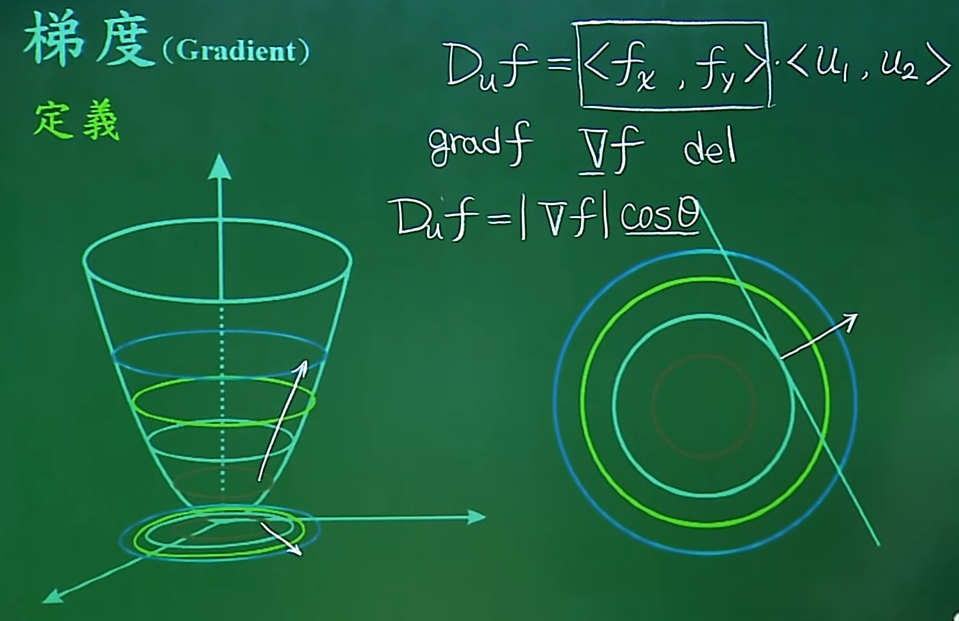 梯度(Gradient)
定義
D_u f = <f_x , f_y> · <u_1 , u_2>
grad f ∇f del
D_u f = |∇f| cosθ